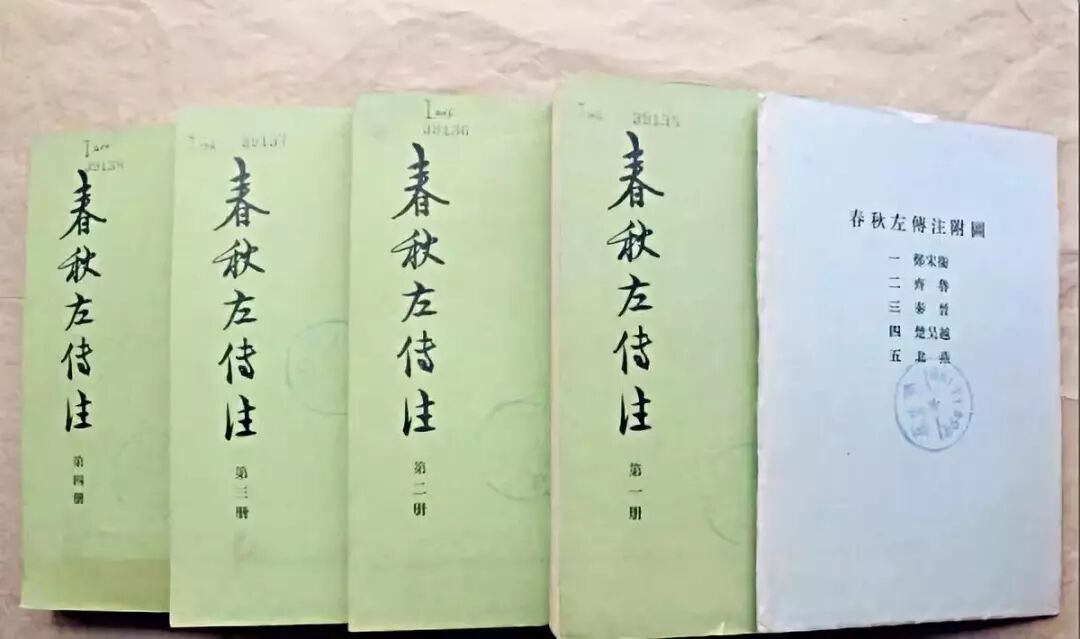 39138
春秋左傳注
第四册
39137
春秋左傳注
第三册
39136
春秋左傳注
第二册
39135
春秋左傳注
第一册
春秋左傳注附圖
一 鄭宋衞
二 齊魯
三 秦晉
四 楚吳越
五 北燕